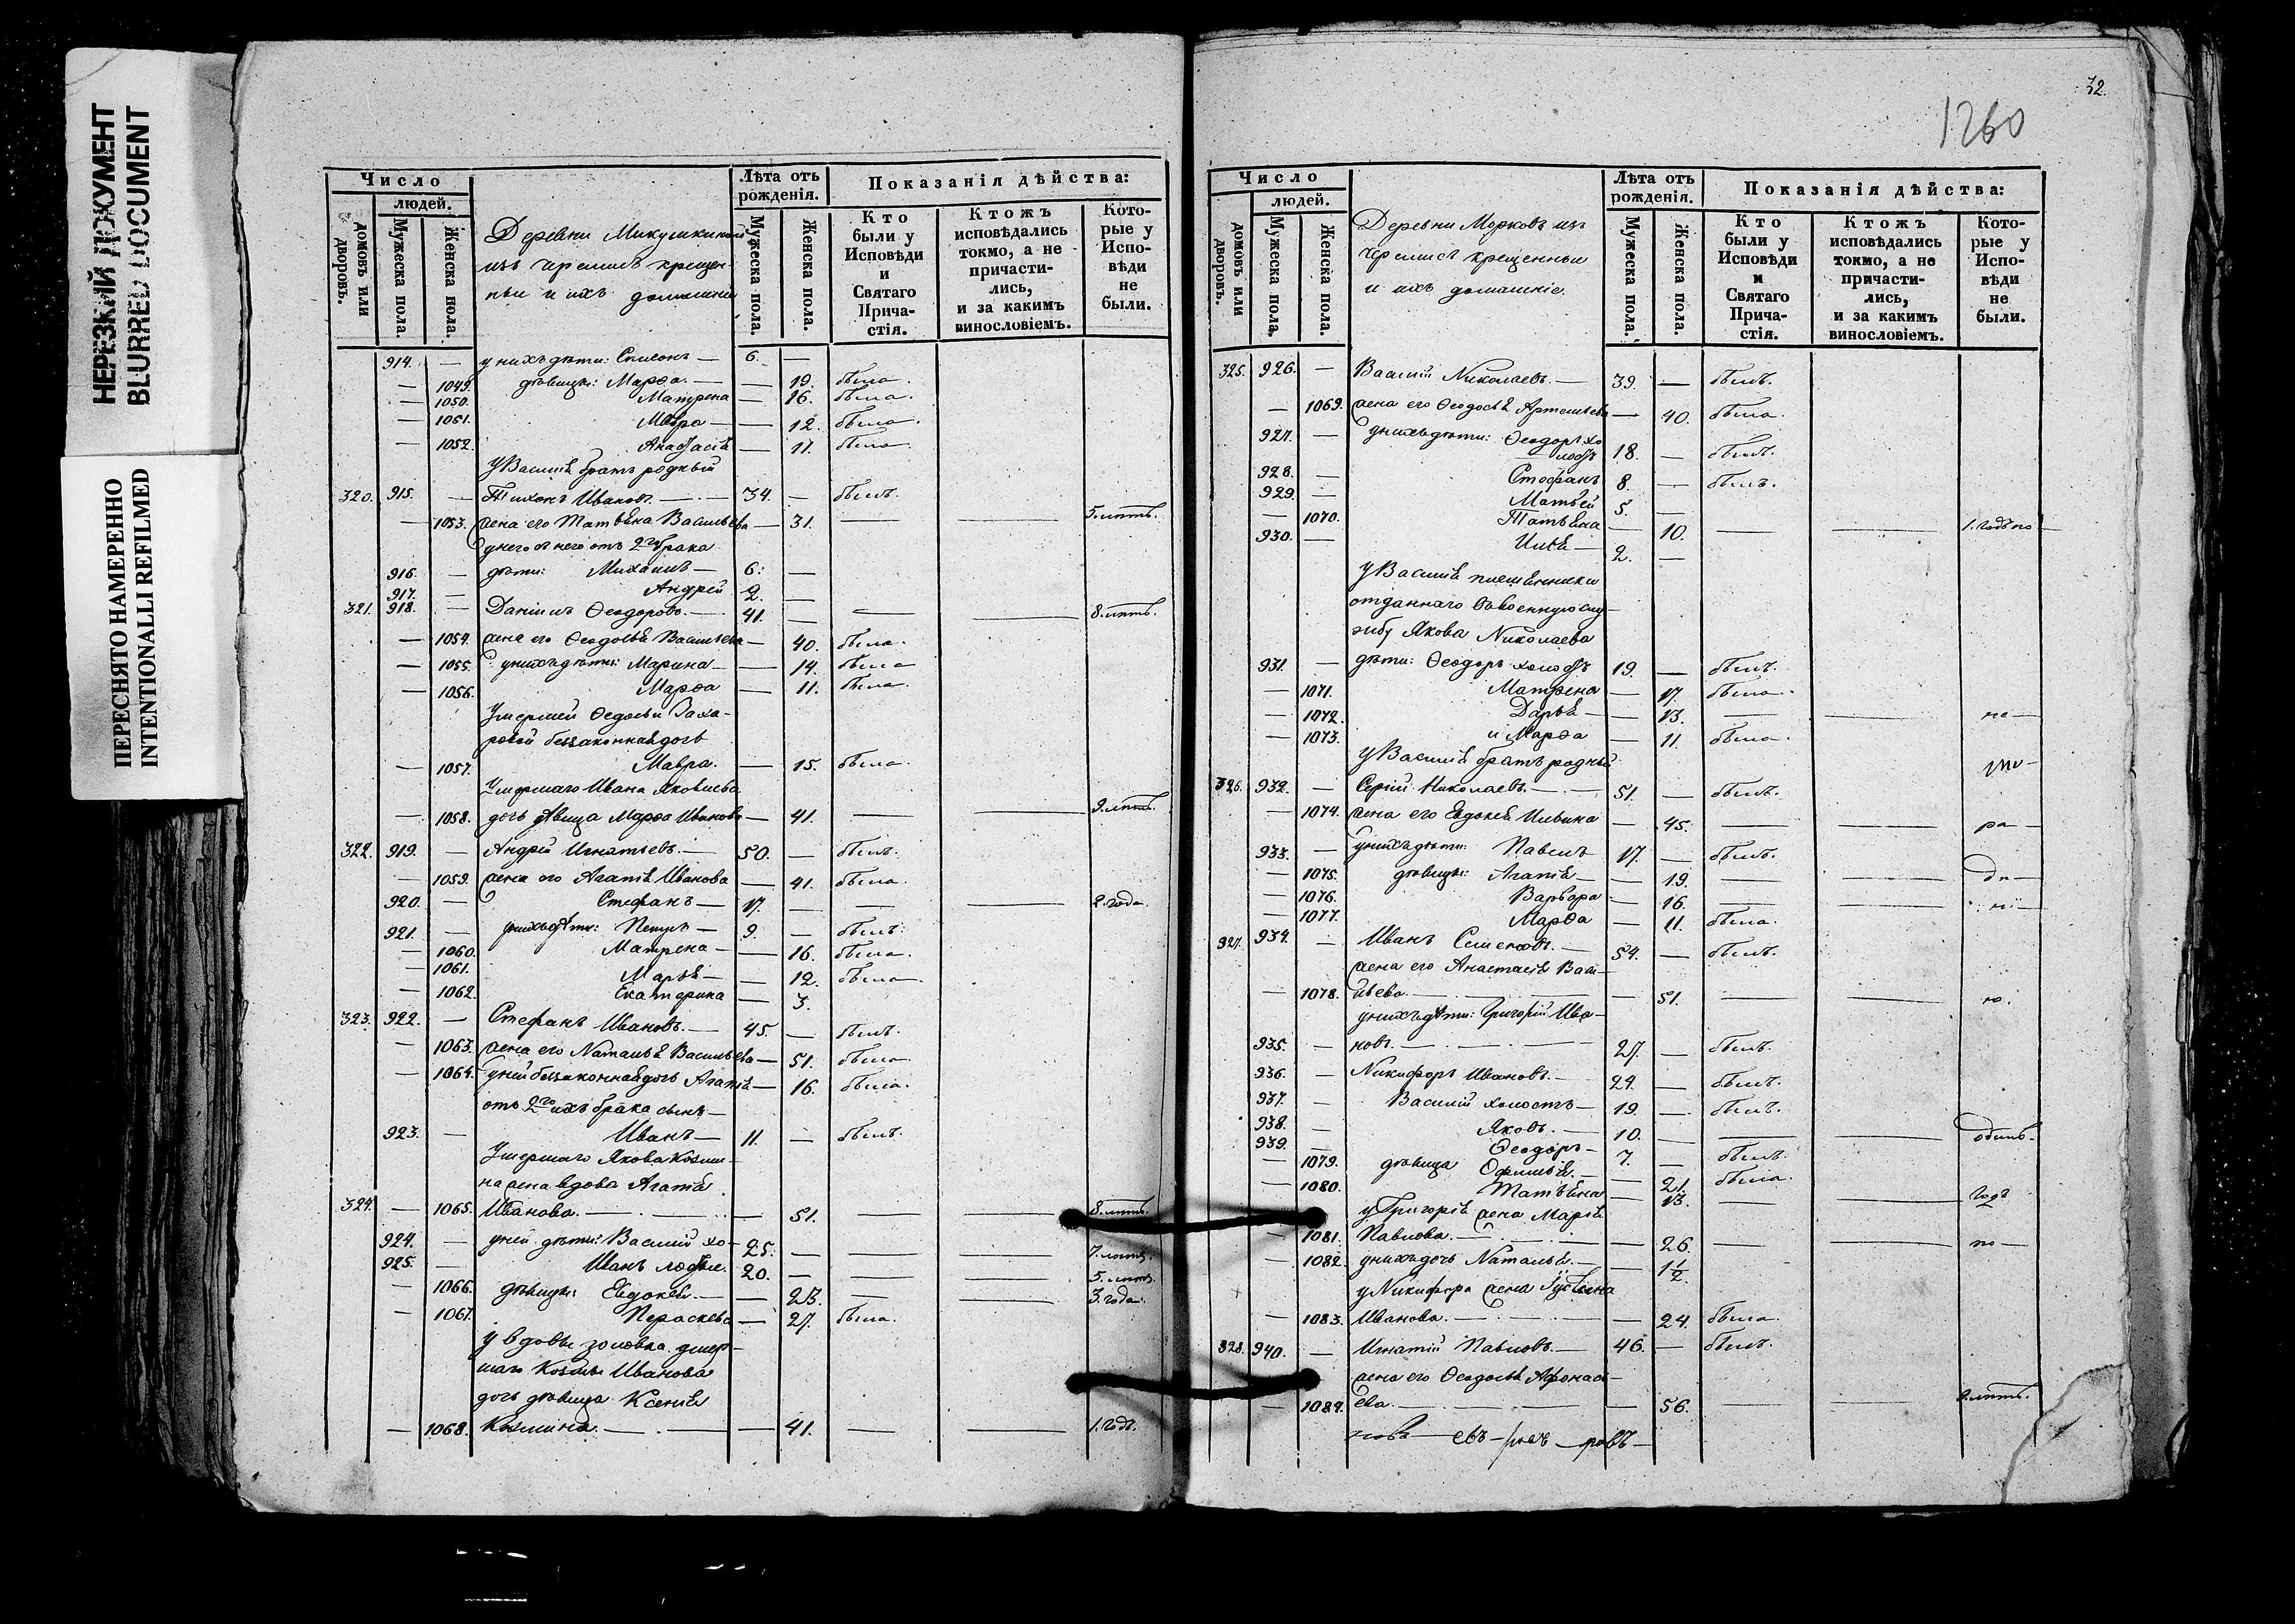 НЕРЕЗКИЙ ДОКУМЕНТ
BLURRED DOCUMENT
ПЕРЕСНЯТО НАМЕРЕННО
INTENTIONALLI REFILMED
Число
людей.
домовъ или дворовъ.
Мужеска пола.
Женска пола.
Деревни Микушкиной
изъ черемисъ крещен-
ные и ихъ домашніе
Лѣта отъ рожденія.
Мужеска пола.
Женска пола.
Показанія дѣйства:
Кто были у Исповѣди и Святаго Прича-стія.
Ктожъ исповѣдались токмо, а не причасти-лись, и за какимъ винословіемъ.
Кото-рые у Испо-вѣди не были.
914. — у нихъ дѣти: — 6. —
— 1049. дѣвицы: Марѳа. — — 19. была.
— 1050. Матрена — 16. была.
— 1051. Мавра — — 12. была.
— 1052. — 11. была
У Василія братъ родный
320. 915. — Тихонъ Ивановъ. — 34. — былъ.
— 1053. жена его Татьяна Васильева — 31. — — 5. лѣтъ.
у него отъ 2го брака
916. — дѣти: Михаилъ — 6. —
917. — Андрей 2. —
321. 918. — Даніилъ Ѳеодоровъ. — 41. — — — 8. лѣтъ.
— 1054. жена его Ѳеодосья Васильева — 40. была.
— 1055. у нихъ дѣти: Марина — — 14. была
— 1056. Марѳа — 11. была.
Умершей Ѳедосьи Заха-
ровой беззаконная дочь
— 1057. Мавра. — 15. была.
Умершаго Ивана Яковлева
— 1058. дочь дѣвица Марѳа Иванова — 41. — — 9. лѣтъ.
322. 919. — Андрей Игнатьевъ. — 50. — былъ.
— 1059. жена его Агапія Иванова — 41. была.
920. — Стефанъ — 17. — — — 2. года.
921. — у нихъ дѣти: Петръ — 9. — былъ.
— 1060. Матрена — — 16. была.
— 1061. Марья — — 12. была
— 1062. Екатерина — 3.
323. 922. — Стефанъ Ивановъ. — 45. — былъ.
— 1063. жена его Наталья Васильева — 51. была
— 1064. у ней беззаконная дочь Агапія — 16. была.
отъ 2го ихъ брака сынъ —
923. — Иванъ — 11. — былъ.
Умершаго Якова Козми-
на жена вдова Агапія
324. — 1065. Иванова. — — 51. — — 8. лѣтъ.
924. — у ней дѣти: Василій хо- 25. — — — 7. лѣтъ.
925. — Иванъ лосты. 20. — — — 5. лѣтъ.
— 1066. дѣвицы: Евдокея — — 23. — — 3. года.
— 1067. Параскева — 27. была.
у вдовы золовка умер-
шаго Козмы Иванова
дочь дѣвица Ксенія
— 1068. Козмина. — — 41. — — 1. годъ.
32.
1260
Число
людей.
домовъ или дворовъ.
Мужеска пола.
Женска пола.
Деревни Морковъ изъ
черемисъ крещенныи
и ихъ домашніе.
Лѣта отъ рожденія.
Мужеска пола.
Женска пола.
Показанія дѣйства:
Кто были у Исповѣди и Святаго Прича-стія.
Ктожъ исповѣдались токмо, а не причасти-лись, и за какимъ винословіемъ.
Кото-рые у Испо-вѣди не были.
325. 926. — Василій Николаевъ. — 39. — былъ.
— 1069. жена его Ѳеодосья Артемьева — 40. была.
927. — у нихъ дѣти: Ѳеодоръ хо
лостъ 18. — былъ.
928. — Стефанъ 8. — былъ.
929. — Матвей 5. —
— 1070. Татьяна — 10. — — 1. годъ по —
930. — Илья — 2. —
У Василія племянники
отданнаго въ военную слу-
жбу Якова Николаева
931. — дѣти: Ѳеодоръ холостъ 19. — былъ.
— 1071. Матрена — 17. была.
— 1072. Дарья — — 13. — — не —
— 1073. и Марѳа — 11. была.
У Василія братъ родный
326. 932. — Сергій Николаевъ. — 51. — былъ.
— 1074. жена его Евдокея Ильина — 45. — — ра —
933. — у нихъ дѣти: Павелъ 17. — былъ.
— 1075. дѣвицы: Агапія — — 19. — —
— 1076. Варвара — 16. — —
— 1077. Марѳа — 11. была.
327. 934. — Иванъ Семеновъ. — 54. — былъ.
жена его Анастасія Васи-
— 1078. льева. — — 51. — — ю.
у нихъ дѣти: Григорій Ива-
935. — новъ. — 27. — былъ.
936. — Никифоръ Ивановъ. — 24. — былъ.
937. — Василій холостъ — 19. — былъ.
938. — Яковъ. — 10. — — — одинъ.
939. — Ѳеодоръ — 7. — былъ.
— 1079. дѣвица — 21. была.
— 1080. Татьяна — 13. — — годъ
у Григорія жена Марія
— 1081. Павлова. — — 26. — — по —
— 1082. у нихъ дочь Наталья. — 1½.
у Никифора жена Устинья
— 1083. Иванова. — — 24. была.
328. 940. — Игнатій Павловъ. — 46. — былъ.
жена его Ѳеодосья Афонась-
— 1084. ева. — — 56. — — 9. лѣтъ.